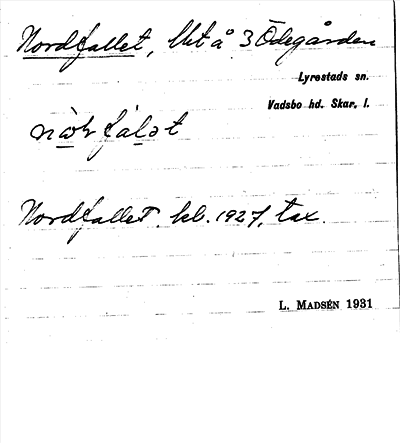 Nordfallet, Utå 3 Ödegården
Lyrestads sn.
Vadsbo hd. Skar. l.
Nordfallet. kb. 1927, tax.
L. MADSÉN 1931